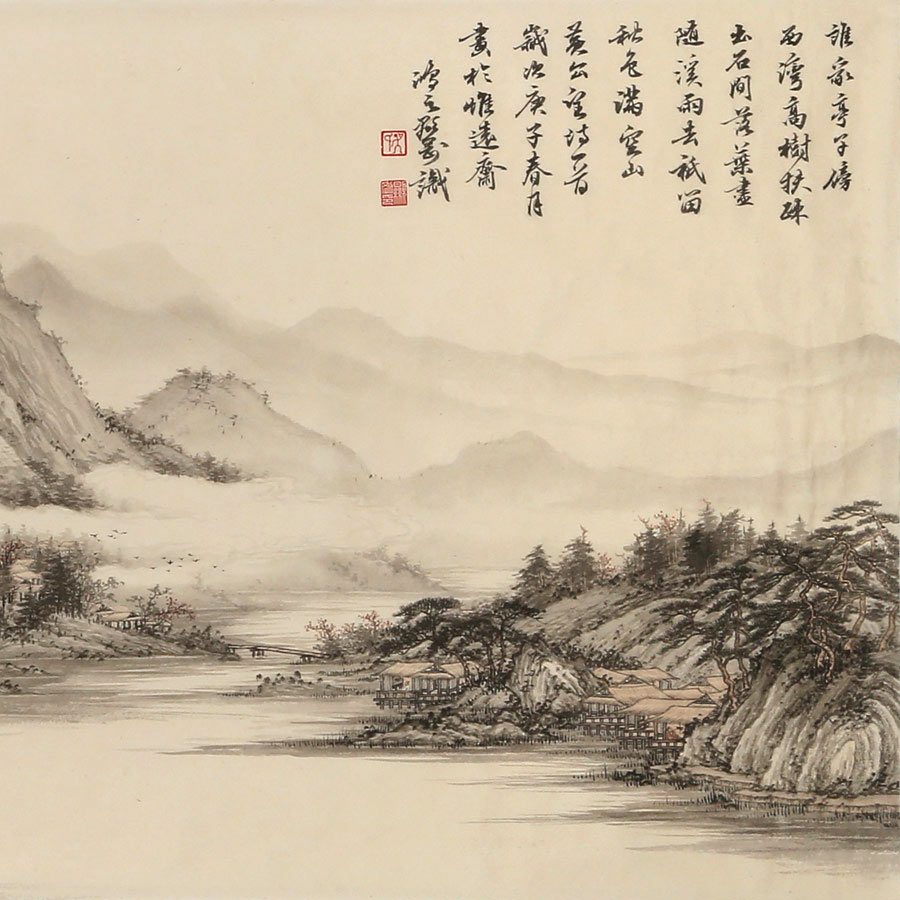 誰家亭子傍
西灣高樹扶疎
出石間落葉盡
隨溪雨去祇留
秋色滿空山
黃公望詩一首
歲次庚子春月
畫於惟遠齋
識